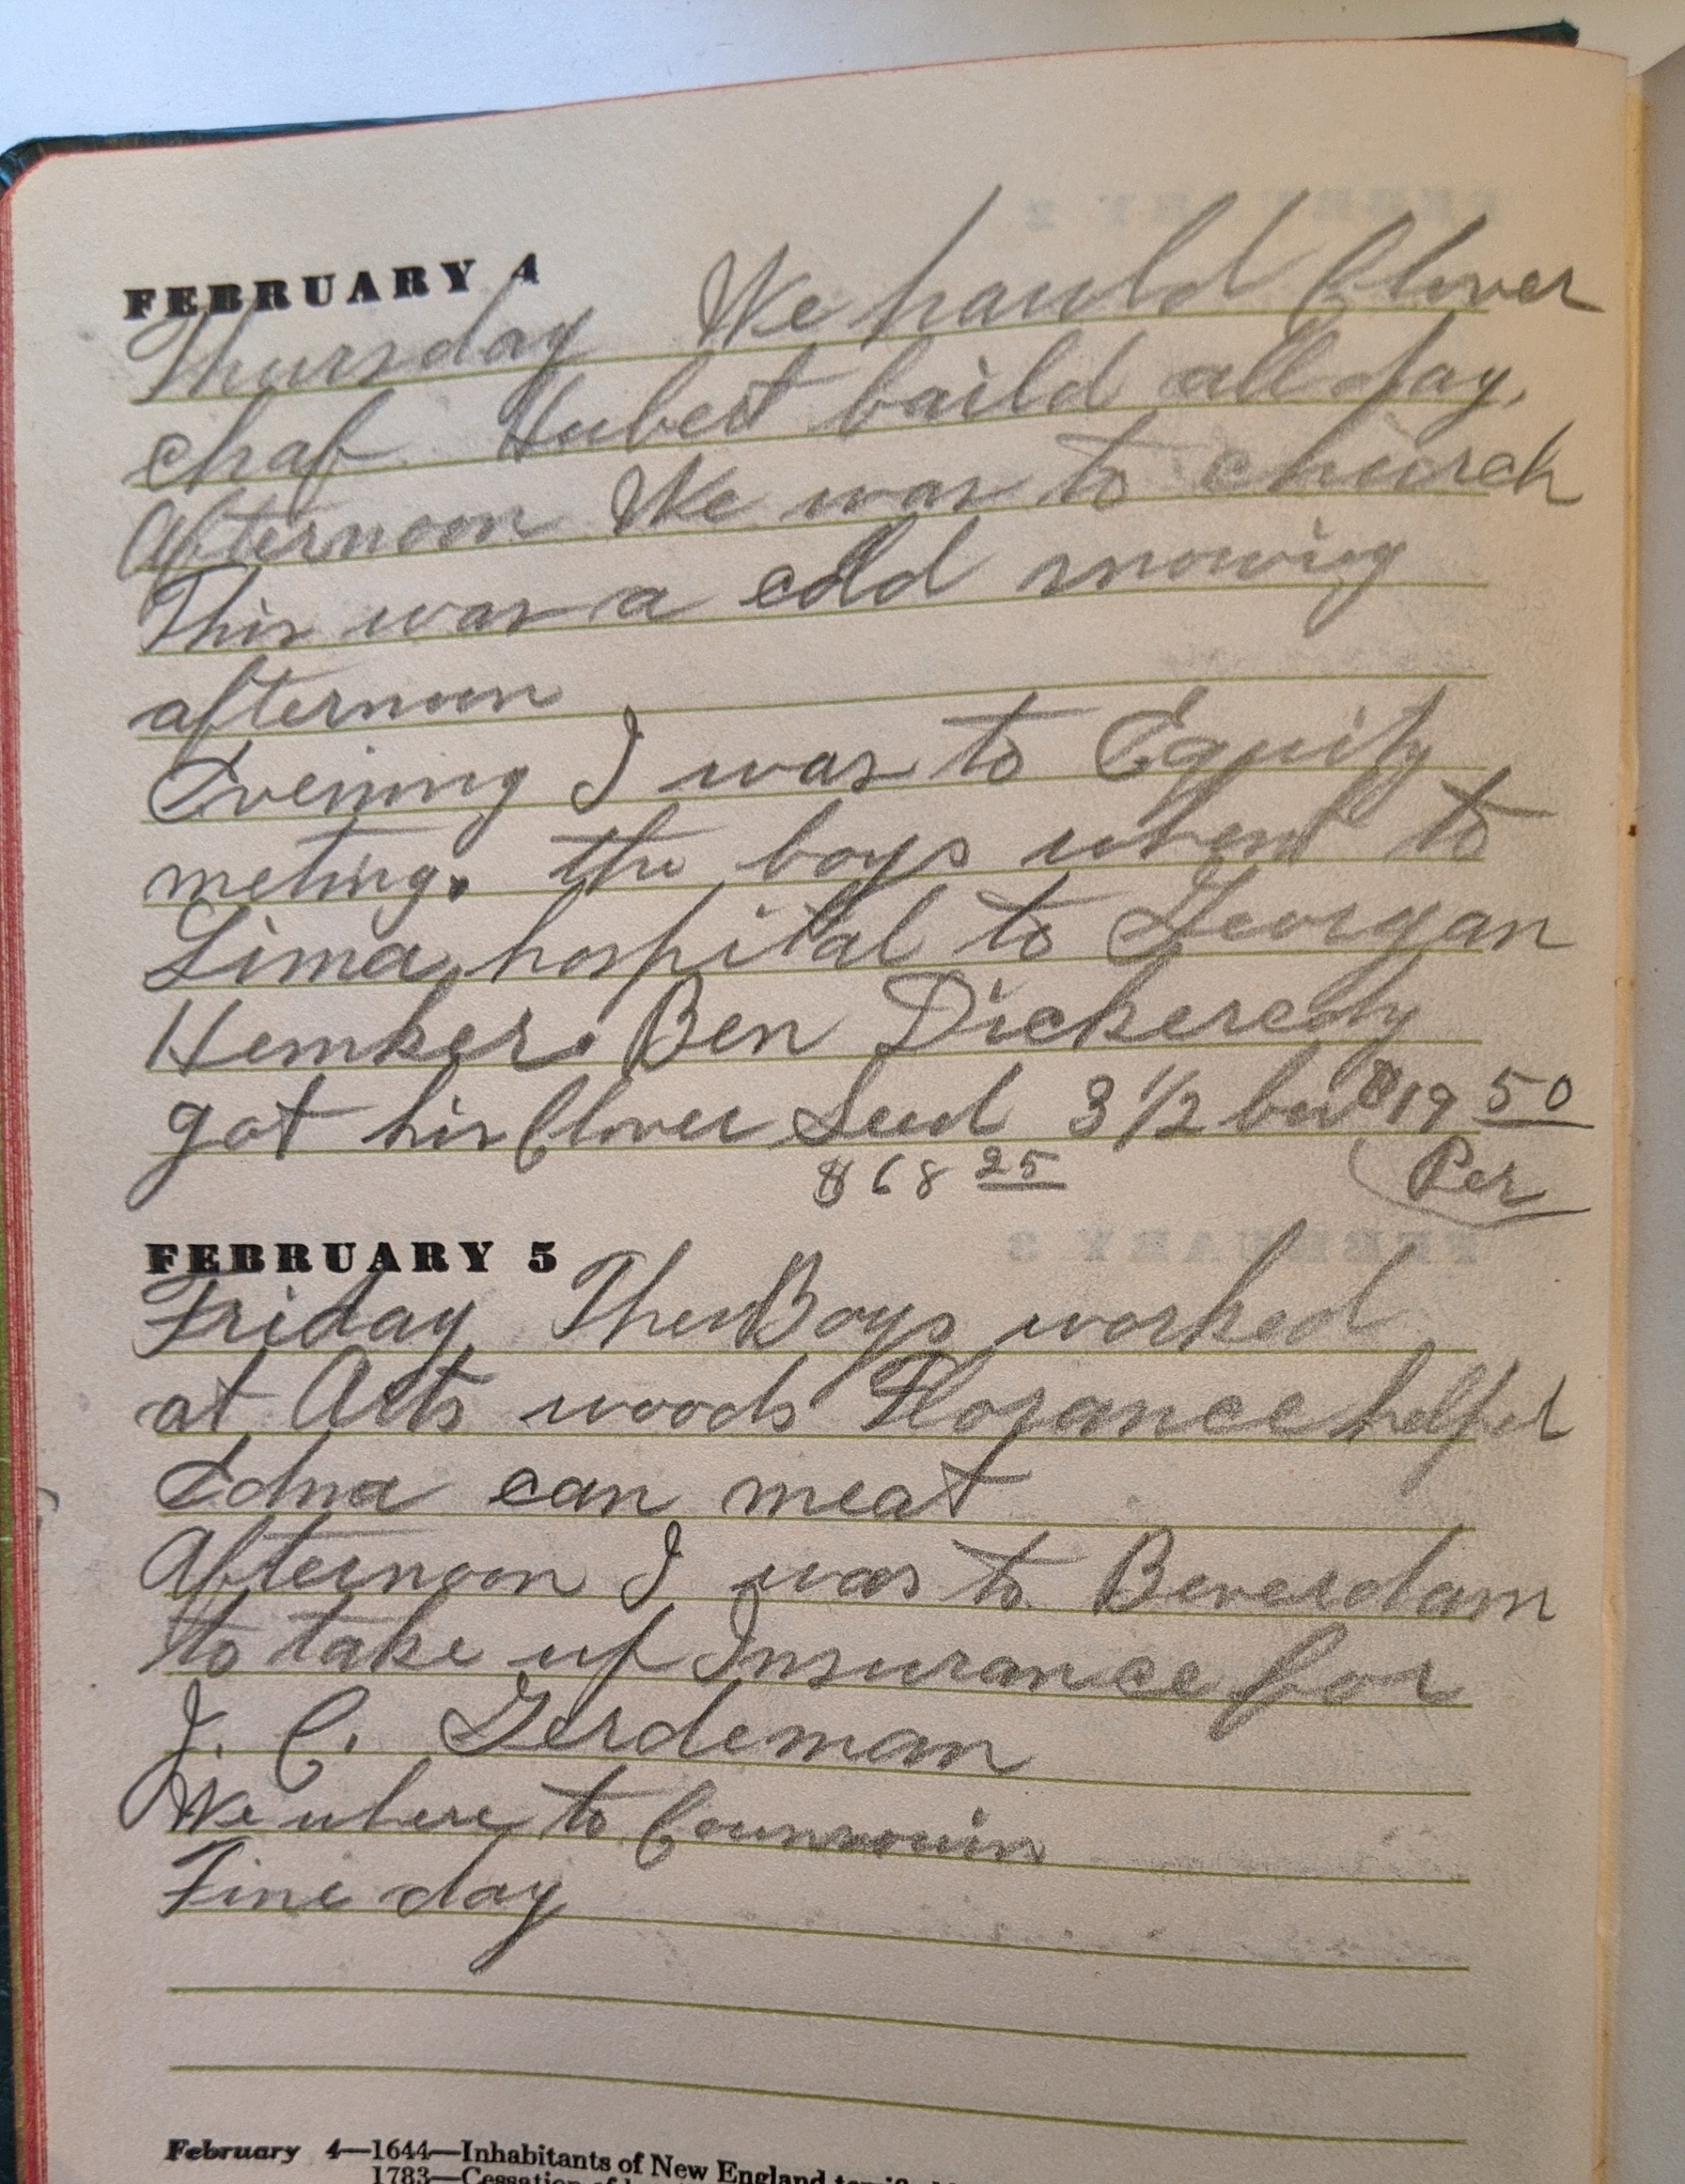 FEBRUARY 4
Thursday We hauld Clover
chaf. Hubert baild all day.
Afternoon We was to church
This was a cold snowig
afternoon
Evening I was to Equity
meting. the boys whent to
Lima hospital to Georgan
Hemker. Ben Dickeredy
got his Clover Seed 3 1/2 bu $19 50
$68 25 Per
FEBRUARY 5
Friday The Boys worked
at Arts woods Florance helped
Edna can meat
Afternoon I was to Beverdam
to take up Insurance for
J. C. Gerdeman
We where to
Fine day
February 4—1644—Inhabitants of New England
1783—Cessation of